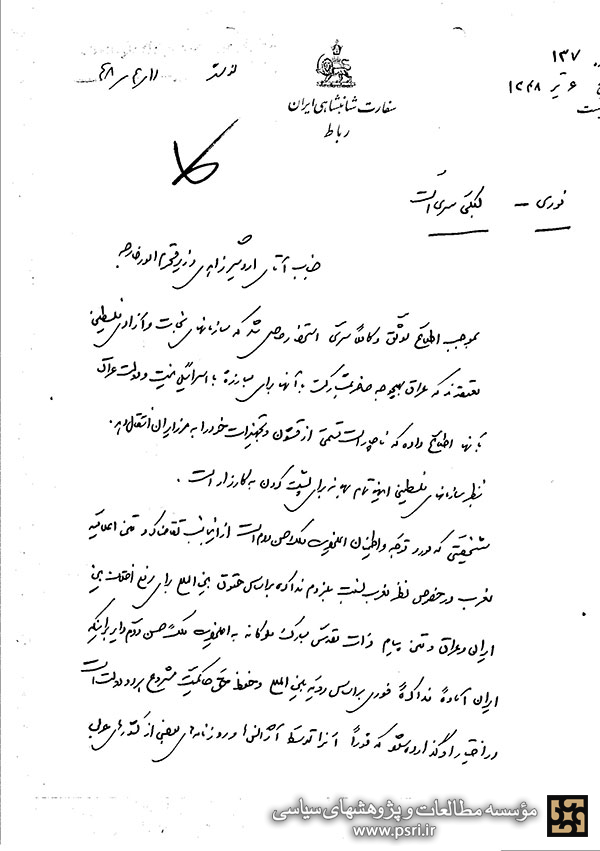 ۱۳۷
۶ تیر ۱۳۴۸
سفارت شاهنشاهی ایران
رباط
فوری - بکلی سری است
جناب آقای اردشیر زاهدی وزیر محترم امور خارجه
بموجب اطلاع موثق و کاملاً سری استحضار حاصل شد که سازمانهای نجات و آزادی فلسطین
معتقدند که عراق بهیچوجه حاضر بشرکت با آنها برای مبارزه با اسرائیل نیست و دولت عراق
بآنها اطلاع داده که ناچار است قسمتی از قشون و تجهیزات خود را به مرز ایران انتقال دهد.
بنظر سازمانهای فلسطینی اینهم تمام بهانه برای پشت کردن به کارزار است.
شخصیتی که مورد توجه و اطمینان اعلیحضرت ملک حسن دوم است از اینجانب تقاضا کرد متن اعلامیه
مغرب در خصوص نظر مغرب نسبت بلزوم مذاکره براساس حقوق بین الملل برای رفع اختلاف بین
ایران و عراق و متن پیام ذات مقدس مبارک ملوکانه به اعلیحضرت ملک حسن دوم دایر براینکه
ایران آماده مذاکره فوری براساس رویه بین المللی و حفظ حق حاکمیت مشروع هر دو دولت است
در اختیار او گذارده شود که فوراً آنرا توسط آژانسها و روزنامه‌های بعضی از کشورهای عربی
مؤسسه مطالعات و پژوهشهای سیاسی
www.psri.ir